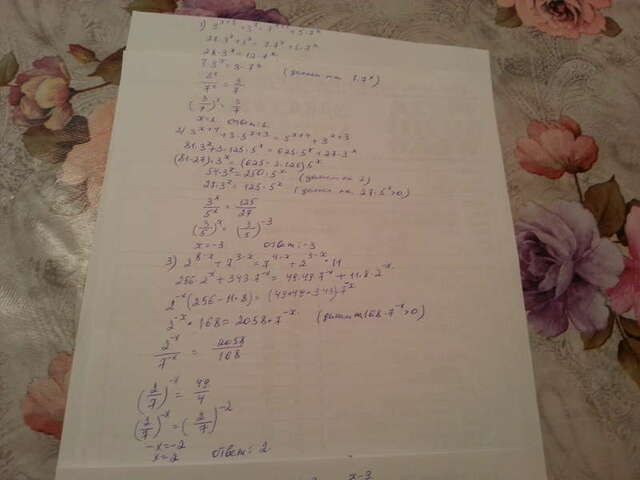 1) 3^{x+3} + 3^x = 7^{x+1} + 5·7^x
27·3^x + 3^x = 7·7^x + 5·7^x
28·3^x = 12·7^x
7·3^x = 3·7^x (делим на 7·7^x)
3^x / 7^x = 3/7
(3/7)^x = 3/7
x=1 ответ: 1
2) 3^{x+4} + 3·5^{x+3} = 5^{x+4} + 3^{x+3}
81·3^x + 3·125·5^x = 625·5^x + 27·3^x
(81-27)·3^x = (625-3·125)5^x
54·3^x = 250·5^x (делим на 2)
27·3^x = 125·5^x (делим на 27·5^x>0)
3^x / 5^x = 125/27
(3/5)^x = (3/5)^{-3}
x=-3 ответ: -3
3) 2^{8-x} + 7^{3-x} = 7^{4-x} + 2^{3-x}·11
256·2^{-x} + 343·7^{-x} = 49·49·7^{-x} + 11·8·2^{-x}
2^{-x}(256-11·8) = (49·49-343)7^{-x}
2^{-x}·168 = 2058·7^{-x} (делим на 168·7^{-x}>0)
2^{-x} / 7^{-x} = 2058/168
(2/7)^{-x} = 49/4
(2/7)^{-x} = (2/7)^{-2}
-x=-2
x=2 ответ: 2
x-3